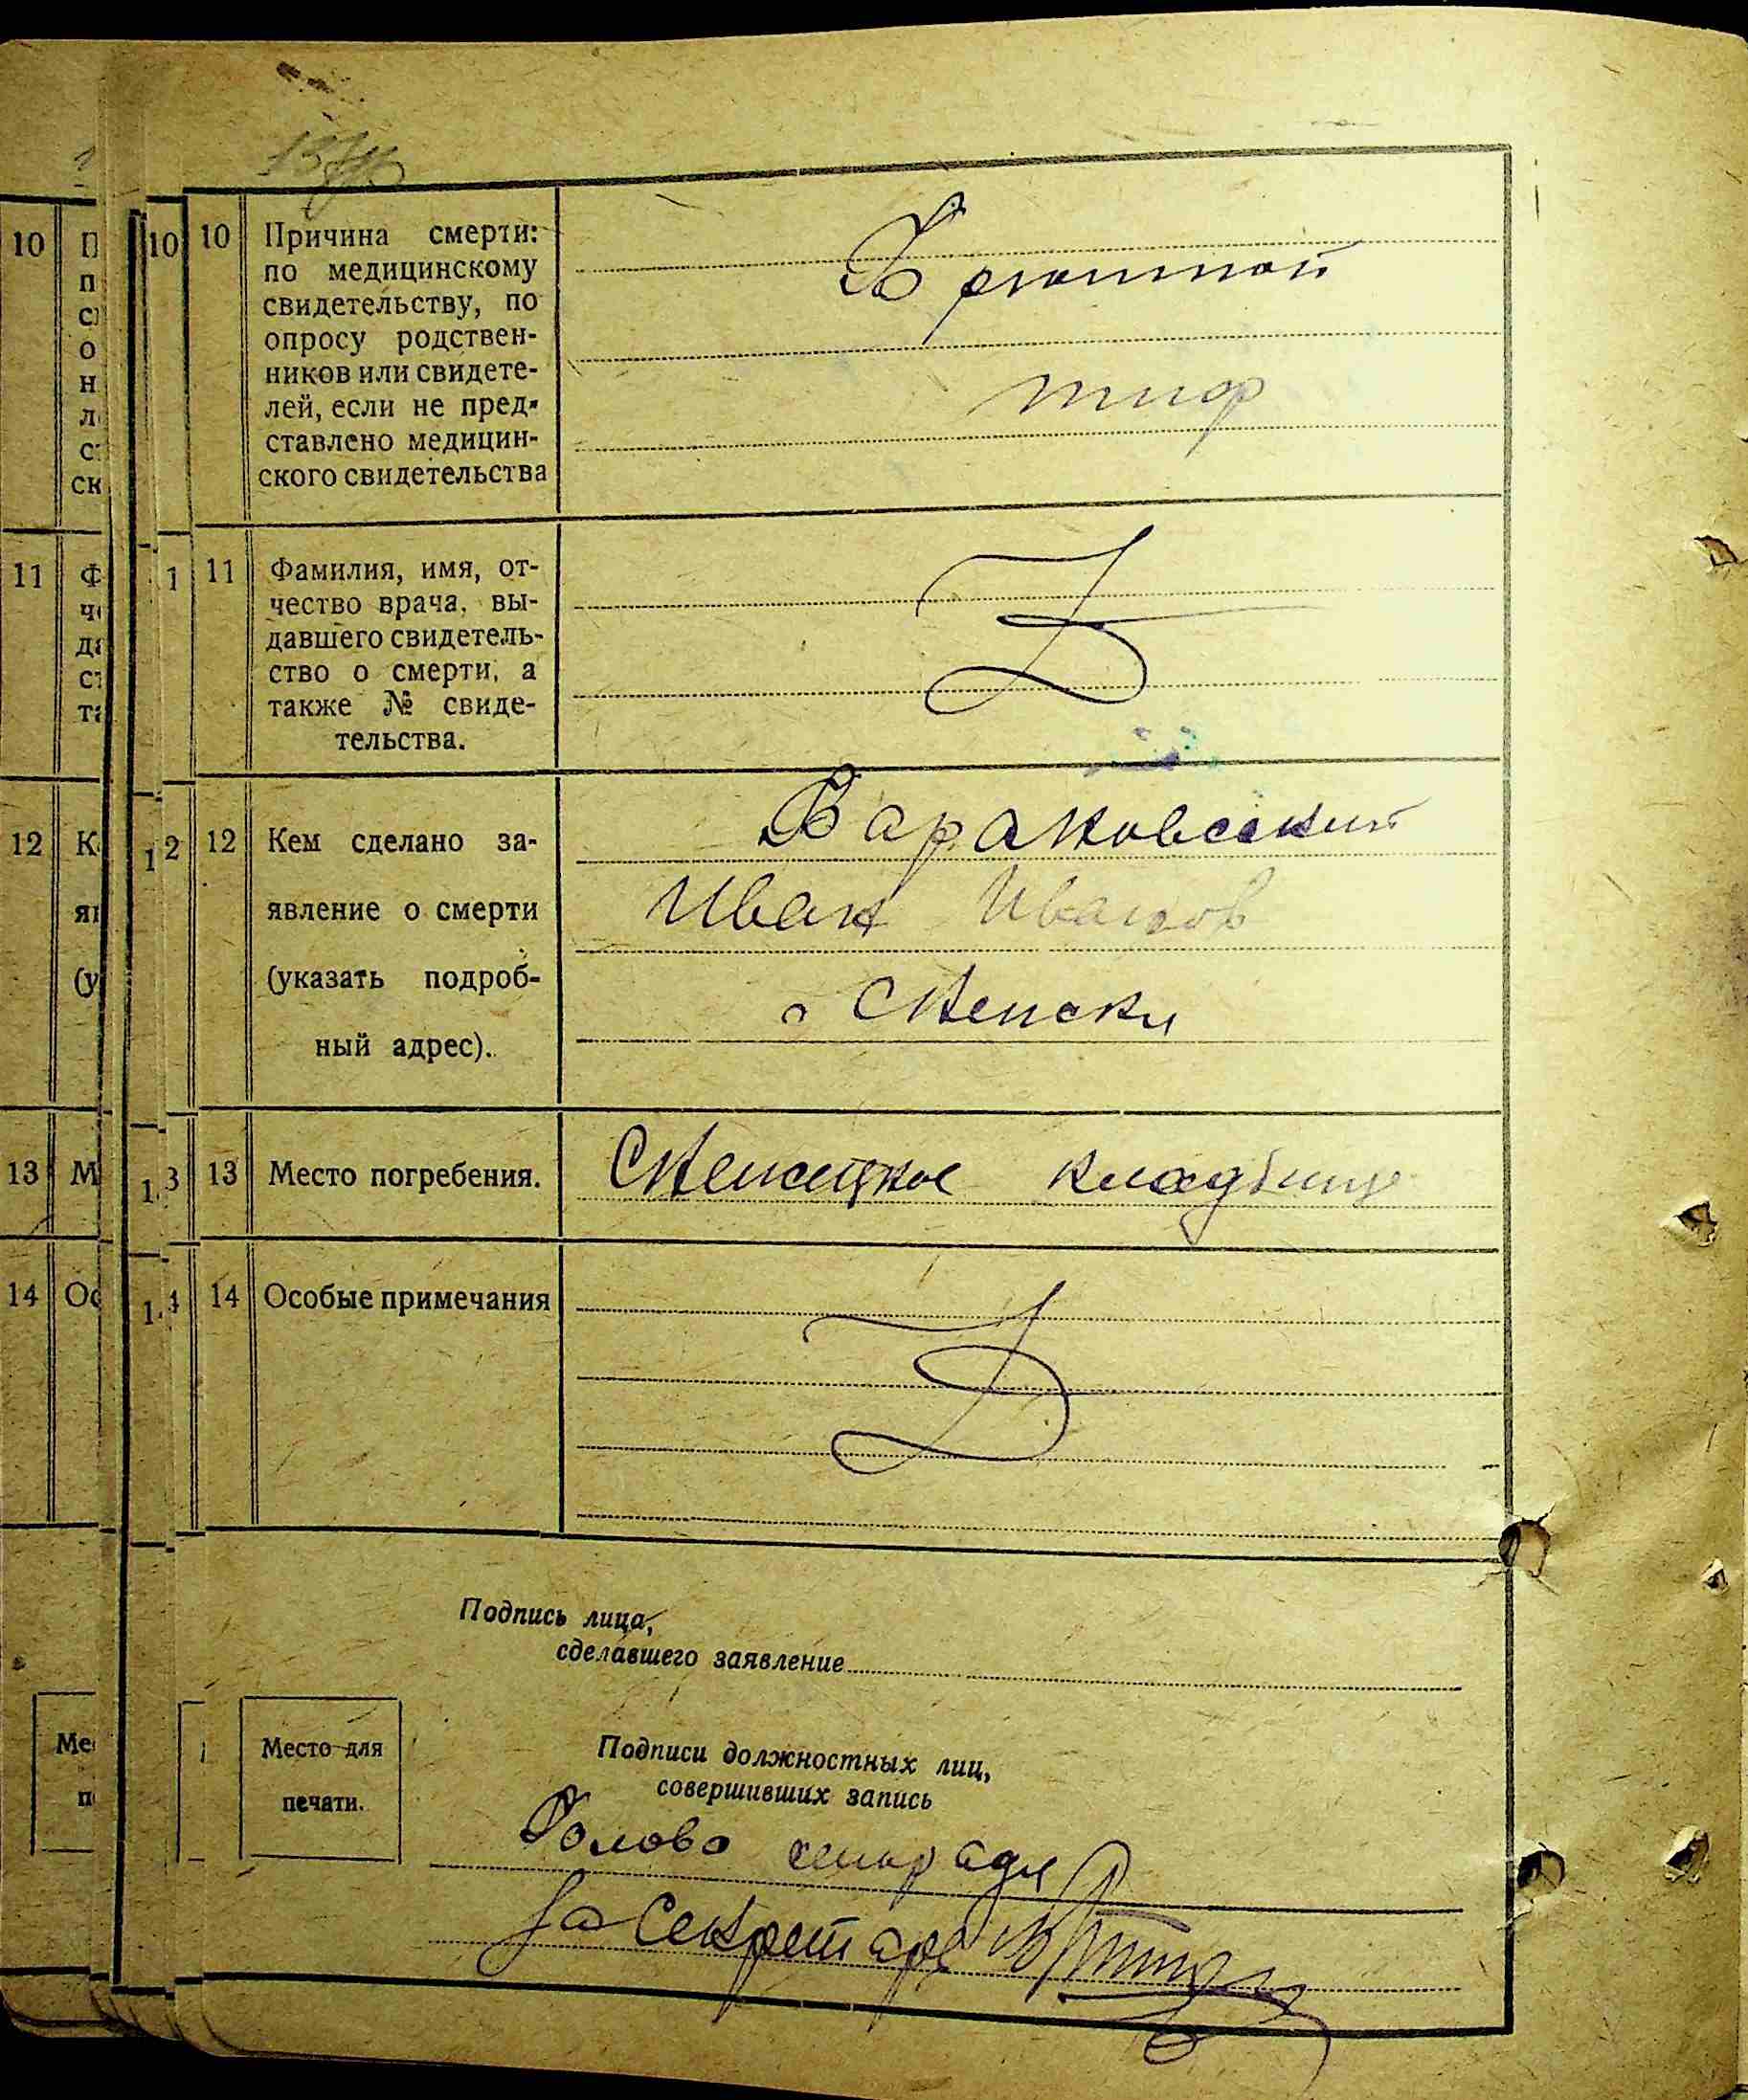 10 Причина смерти:
по медицинскому
свидетельству, по
опросу родствен-
ников или свидете-
лей, если не пред-
ставлено медицин-
ского свидетельства
Брюшной
тиф
11 Фамилия, имя, от-
чество врача, вы-
давшего свидетель-
ство о смерти, а
также № свиде-
тельства.
12 Кем сделано за-
явление о смерти
(указать подроб-
ный адрес).
Бараковский
Иван Иванов
с
13 Место погребения.
кладбище
14 Особые примечания
Подпись лица,
сделавшего заявление
Место для
печати.
Подписи должностных лиц,
совершивших запись
Голова
За Секретаря
10 П
п
с
о
н
л
с
ск
11 Ф
ч
д
с
т
12 К
я
(у
13 М
14 Ос
Ме
п
10
1
12
13
14